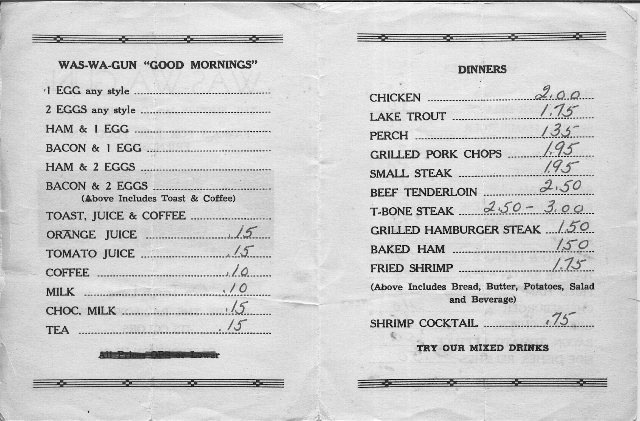 WAS-WA-GUN "GOOD MORNINGS"
1 EGG any style
2 EGGS any style
HAM & 1 EGG
BACON & 1 EGG
HAM & 2 EGGS
BACON & 2 EGGS
(Above Includes Toast & Coffee)
TOAST, JUICE & COFFEE
ORANGE JUICE .15
TOMATO JUICE .15
COFFEE .10
MILK .10
CHOC. MILK .15
TEA .15
DINNERS
CHICKEN 2.00
LAKE TROUT 1.75
PERCH 1.35
GRILLED PORK CHOPS 1.95
SMALL STEAK 1.95
BEEF TENDERLOIN 2.50
T-BONE STEAK 2.50 - 3.00
GRILLED HAMBURGER STEAK 1.50
BAKED HAM 1.50
FRIED SHRIMP 1.75
(Above Includes Bread, Butter, Potatoes, Salad
and Beverage)
SHRIMP COCKTAIL .75
TRY OUR MIXED DRINKS